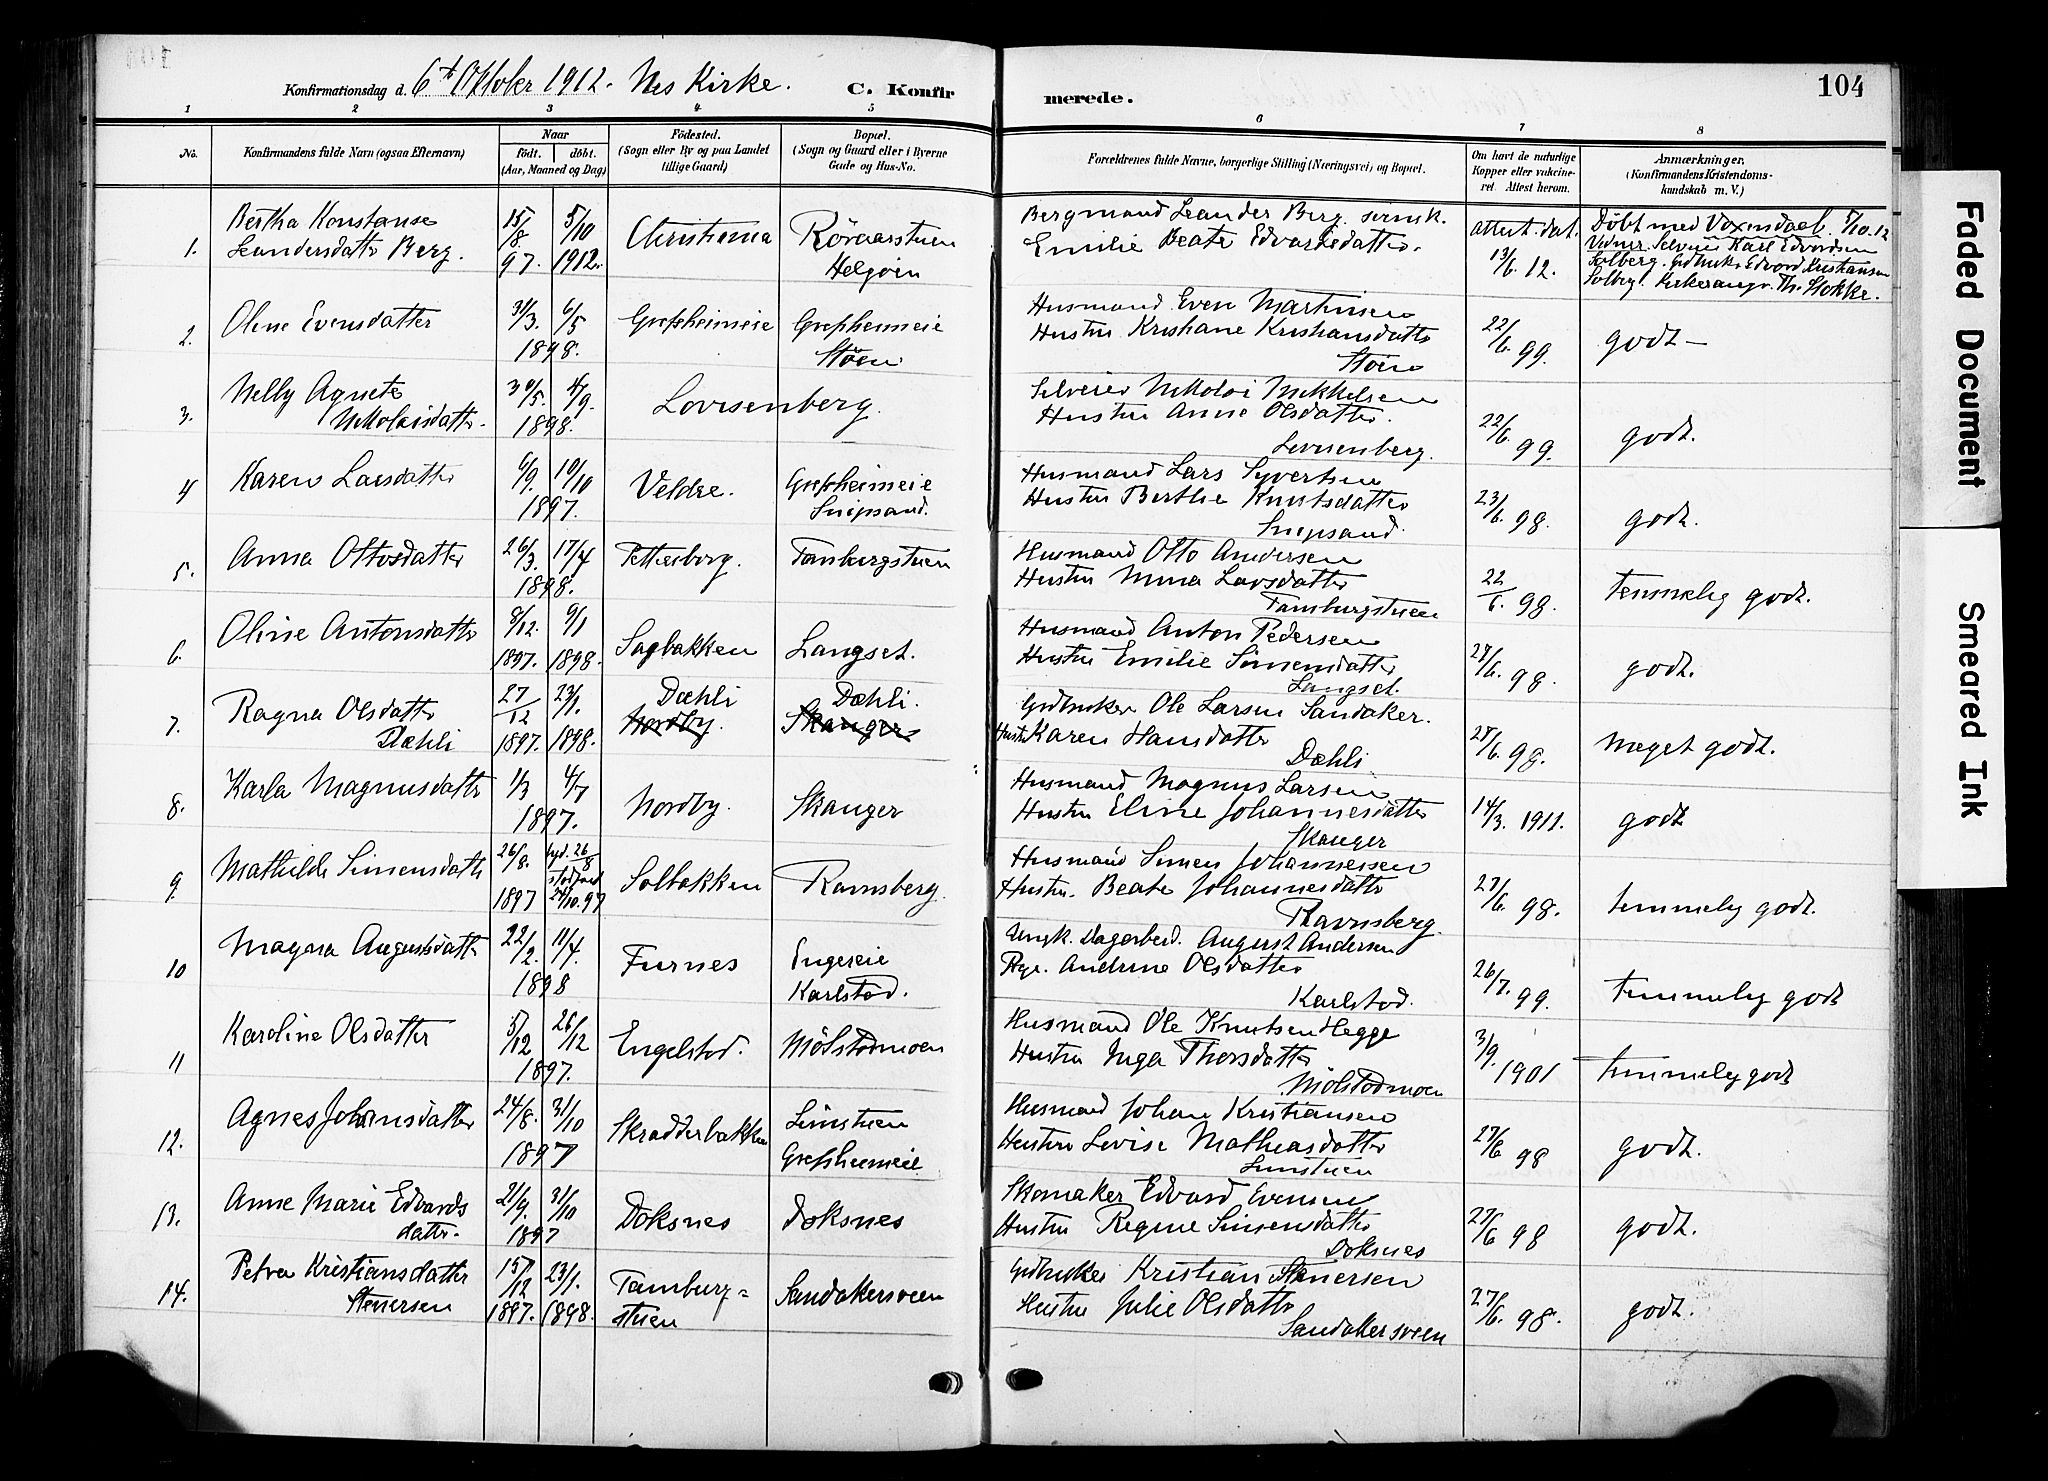 104
Konfirmationsdag d. 6te Oktober 1912. Nes Kirke. C. Konfir merede.
1 2 3 4 5 6 7 8
No. Konfirmandens fulde Navn (ogsaa Efternavn)
Naar født. døbt. (Aar, Maaned og Dag)
Fødested. (Sogn eller By og paa Landet tillige Gaard)
Bopæl. (Sogn og Gaard eller i Byerne Gade og Hus-No.
Forældrenes fulde Navne, borgerlige Stilling (Næringsvei) og Bopæl.
Om havt de naturlige Kopper eller vakcineret. Attest herom.
Anmærkninger. (Konfirmandens Kristendomskundskab m. V.)
1. Bertha Konstanse Leandersdatter Berg. 15/8. 97. 5/10 1912. Christiania Röraarstuen Helgöen
Bergmand Leander Berg. svensk. Emilie Beate Edvardsdatter. attest. dat. 13/6. 12.
Döbt med Voxnedaab. 5/10.12
Selveier Karl Edvardsen
Solberg. Gdbruker Edvard Kristiansen
Solberg. Kirkesanger Th. Stokke.
2. Oline Evensdatter 31/3. 6/5 1898. Grefsheimeie Grefsheimeie Støen
Husmand Even Martinsen Hustru Kristiane Kristiansdatter Støen 22/6. 99. godt —
3. Nelly Agnete Nikolaisdatter. 30/5. 4/9. 1898. Lovisenberg.
Selveier Nikolai Mikkelsen Hustru Anne Olsdatter. Lovisenberg. 22/6. 99. godt.
4 Karen Larsdatter 6/9. 10/10 1897. Veldre. Grefsheimeie Snipsand.
Husmand Lars Syvertsen Hustru Berthe Knutsdatter Snipsand. 23/6. 98. godt.
5. Anna Ottosdatter 26/3. 17/4 1898. Petterborg. Tamburgstuen
Husmand Otto Andersen Hustru Mina Larsdatter Tamburgstuen 22/6. 98. temmelig godt.
6. Oline Antonsdatter 8/12. 1897. 9/1 1898. Sagbakken Langset.
Husmand Anton Pedersen Hustru Emilie Simensdatter Langset. 27/6. 98. godt.
7. Ragna Olsdatter Dæhli 27/12 1897. 23/1. 1898. Dæhli Nordby. Dæhli. Skanger
Gdbruker Ole Larsen Sandaker. Hustru Karen Hansdatter Dæhli 28/6. 98. meget godt.
8. Karla Magnusdatter 1/3 4/7 1897. Nordby. Skanger
Husmand Magnus Larsen Hustru Eline Johannesdatter Skanger 14/3. 1911. godt
9. Mathilde Simensdatter 26/8. 1897 hjd. 26/8 stadf. 24/10. 97 Solbakken Ramsberg.
Husmand Simen Johannessen Hustru. Beate Johannesdatter Ravnsberg. 27/6. 98. temmelig godt.
10 Magna Augustsdatter 22/2. 11/4. 1898 Furnes Karlstad.
Ungk. Dagarbeid. August Andersen Pige. Andrine Olsdatter Karlstad. 26/7. 99. temmelig godt
11 Karoline Olsdatter 5/12 26/12 1897. Engelstad. Mölstadmoen
Husmand Ole Knutsen Hegge Hustru Inga Thorsdatter Mölstadmoen 3/9. 1901 temmelig godt
12. Agnes Johansdatter 24/8. 31/10 1897 Skradderbakken Limstuen Grefsheimeie
Husmand Johan Kristiansen Hustru Lovise Mathiasdatter Limstuen 27/6 98 godt.
13. Anne Marie Edvardsdatter. 21/9. 31/10 1897 Doksnes Doksnes
Skomaker Edvard Evensen Hustru Regine Simensdatter Doksnes 27/6 98 godt.
14. Petra Kristiansdatter Stenersen 15/12 1897. 23/1. 1898. Tamburg-stuen Sandakersveen
Gdbruker Kristian Stenersen Hustru Julie Olsdatter Sandakersveen 27/6. 98. godt.
Faded Document
Smeared Ink